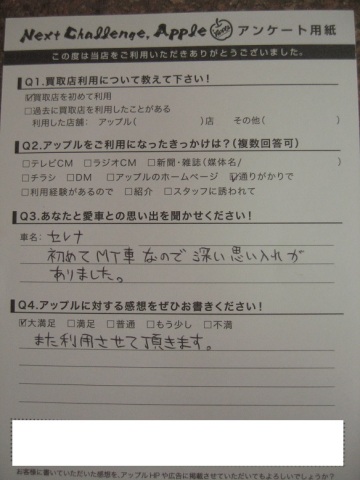 Next Challenge, Apple アンケート用紙
この度は当店をご利用いただきありがとうございました。
Q1.買取店利用について教えて下さい!
☑買取店を初めて利用
□過去に買取店を利用したことがある
利用した店舗: アップル( )店 その他( )
Q2.アップルをご利用になったきっかけは?(複数回答可)
□テレビCM □ラジオCM □新聞・雑誌(媒体名/ )
□チラシ □DM □アップルのホームページ ☑通りがかりで
□利用経験があるので □紹介 □スタッフに誘われて
Q3.あなたと愛車との思い出を聞かせください!
車名: セレナ
初めてMT車なので深い思い入れが
ありました。
Q4.アップルに対する感想をぜひお書きください!
☑大満足 □満足 □普通 □もう少し □不満
また利用させて頂きます。
お客様に書いていただいた感想を、アップルHPや広告に掲載させていただいてもよろしいでしょうか?